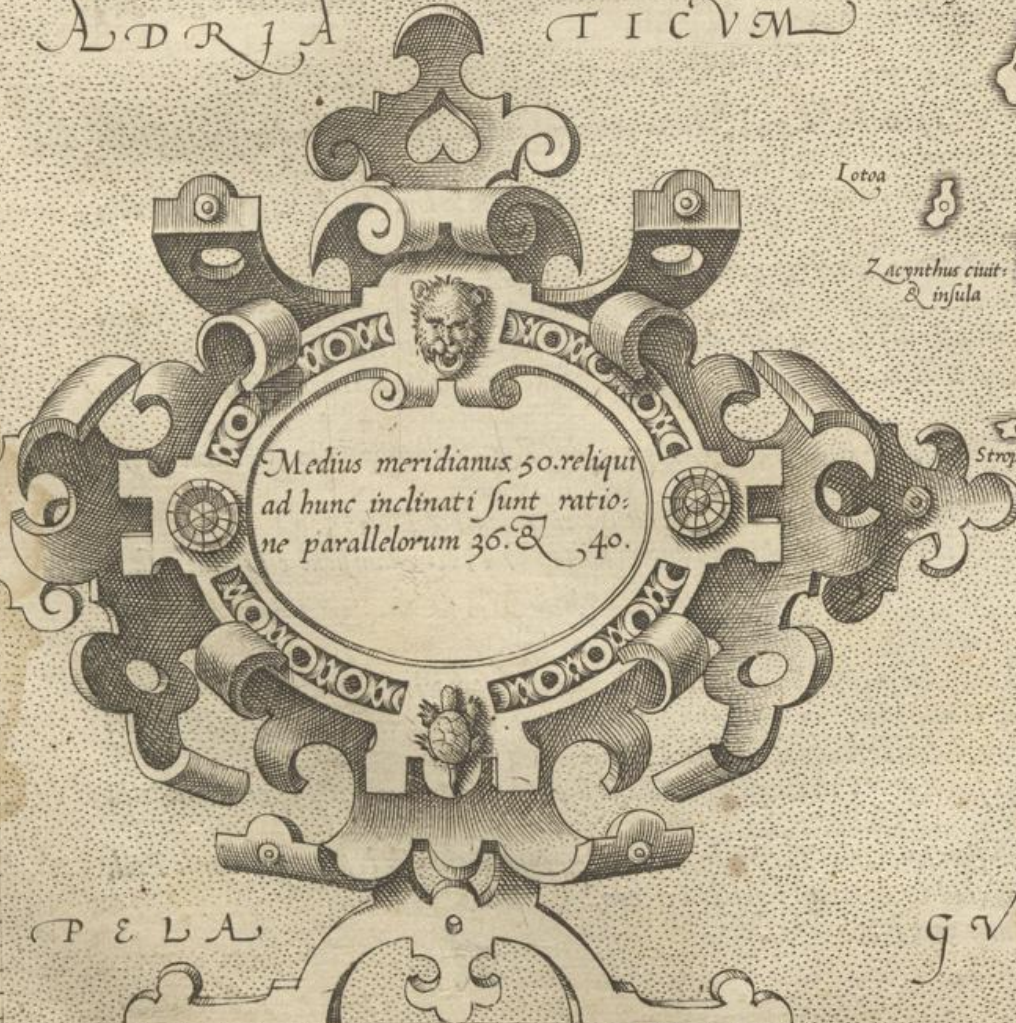 ADRIA TICVM
Lotoa
Zacynthus ciuit:
& insula
Strop
Medius meridianus 50. reliqui
ad hunc inclinati sunt ratio:
ne parallelorum 36. & 40.
PELA GV